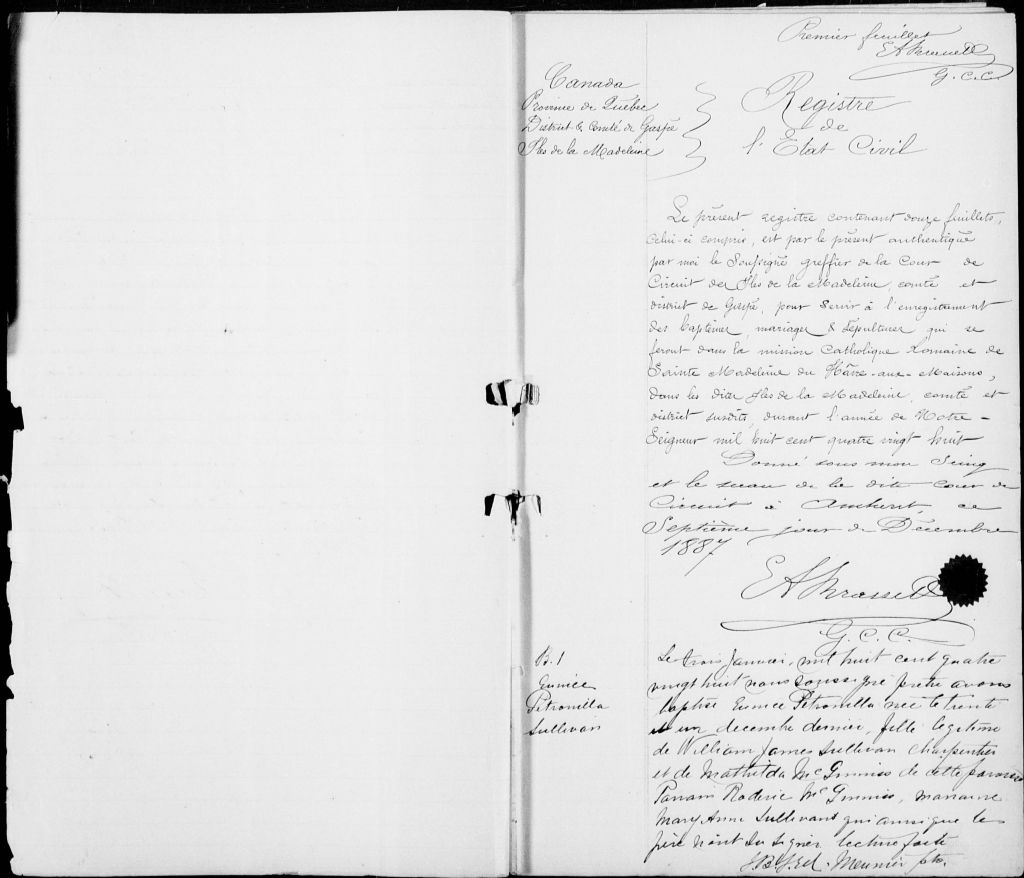 Premier feuillet
E A Brasset
G. C. C.
Canada
Province de Québec
District & Comté de Gaspé
Iles de la Madeleine
Registre
de
l'Etat Civil
Le présent registre contenant douze feuillets,
celui-ci compris, est par le présent authentiqué
par moi le Soussigné greffier de la Cour de
Circuit des Iles de la Madeleine, comté et
district de Gaspé, pour servir à l'enregistrement
des baptêmes, mariages & sépultures qui se
feront dans la mission Catholique Romaine de
Sainte Madeleine du Hâvre-aux-Maisons,
dans les dites Iles de la Madeleine, comté et
district susdits, durant l'année de Notre-
Seigneur mil huit cent quatre vingt huit
Donné sous mon Seing
et le sceau de la dite cour de
Circuit à Amherst ce
Septième jour de Décembre
1887
E A Brasset
G. C. C.
B. 1
Eunice
Petronilla
Sullivan
Le trois Janvier, mil huit cent quatre
vingt huit nous soussigné prêtre avons
baptisé Eunice Petronilla née le trente
et un decembre dernier, fille legitime
de William James Sullivan Charpentier
et de Mathilda McGinniss de cette paroisse
Parrain Roderic McGinniss, marraine
Mary Anne Sullivan qui ainsi que le
père n'ont su signer. lecture faite
Meunier ptre.